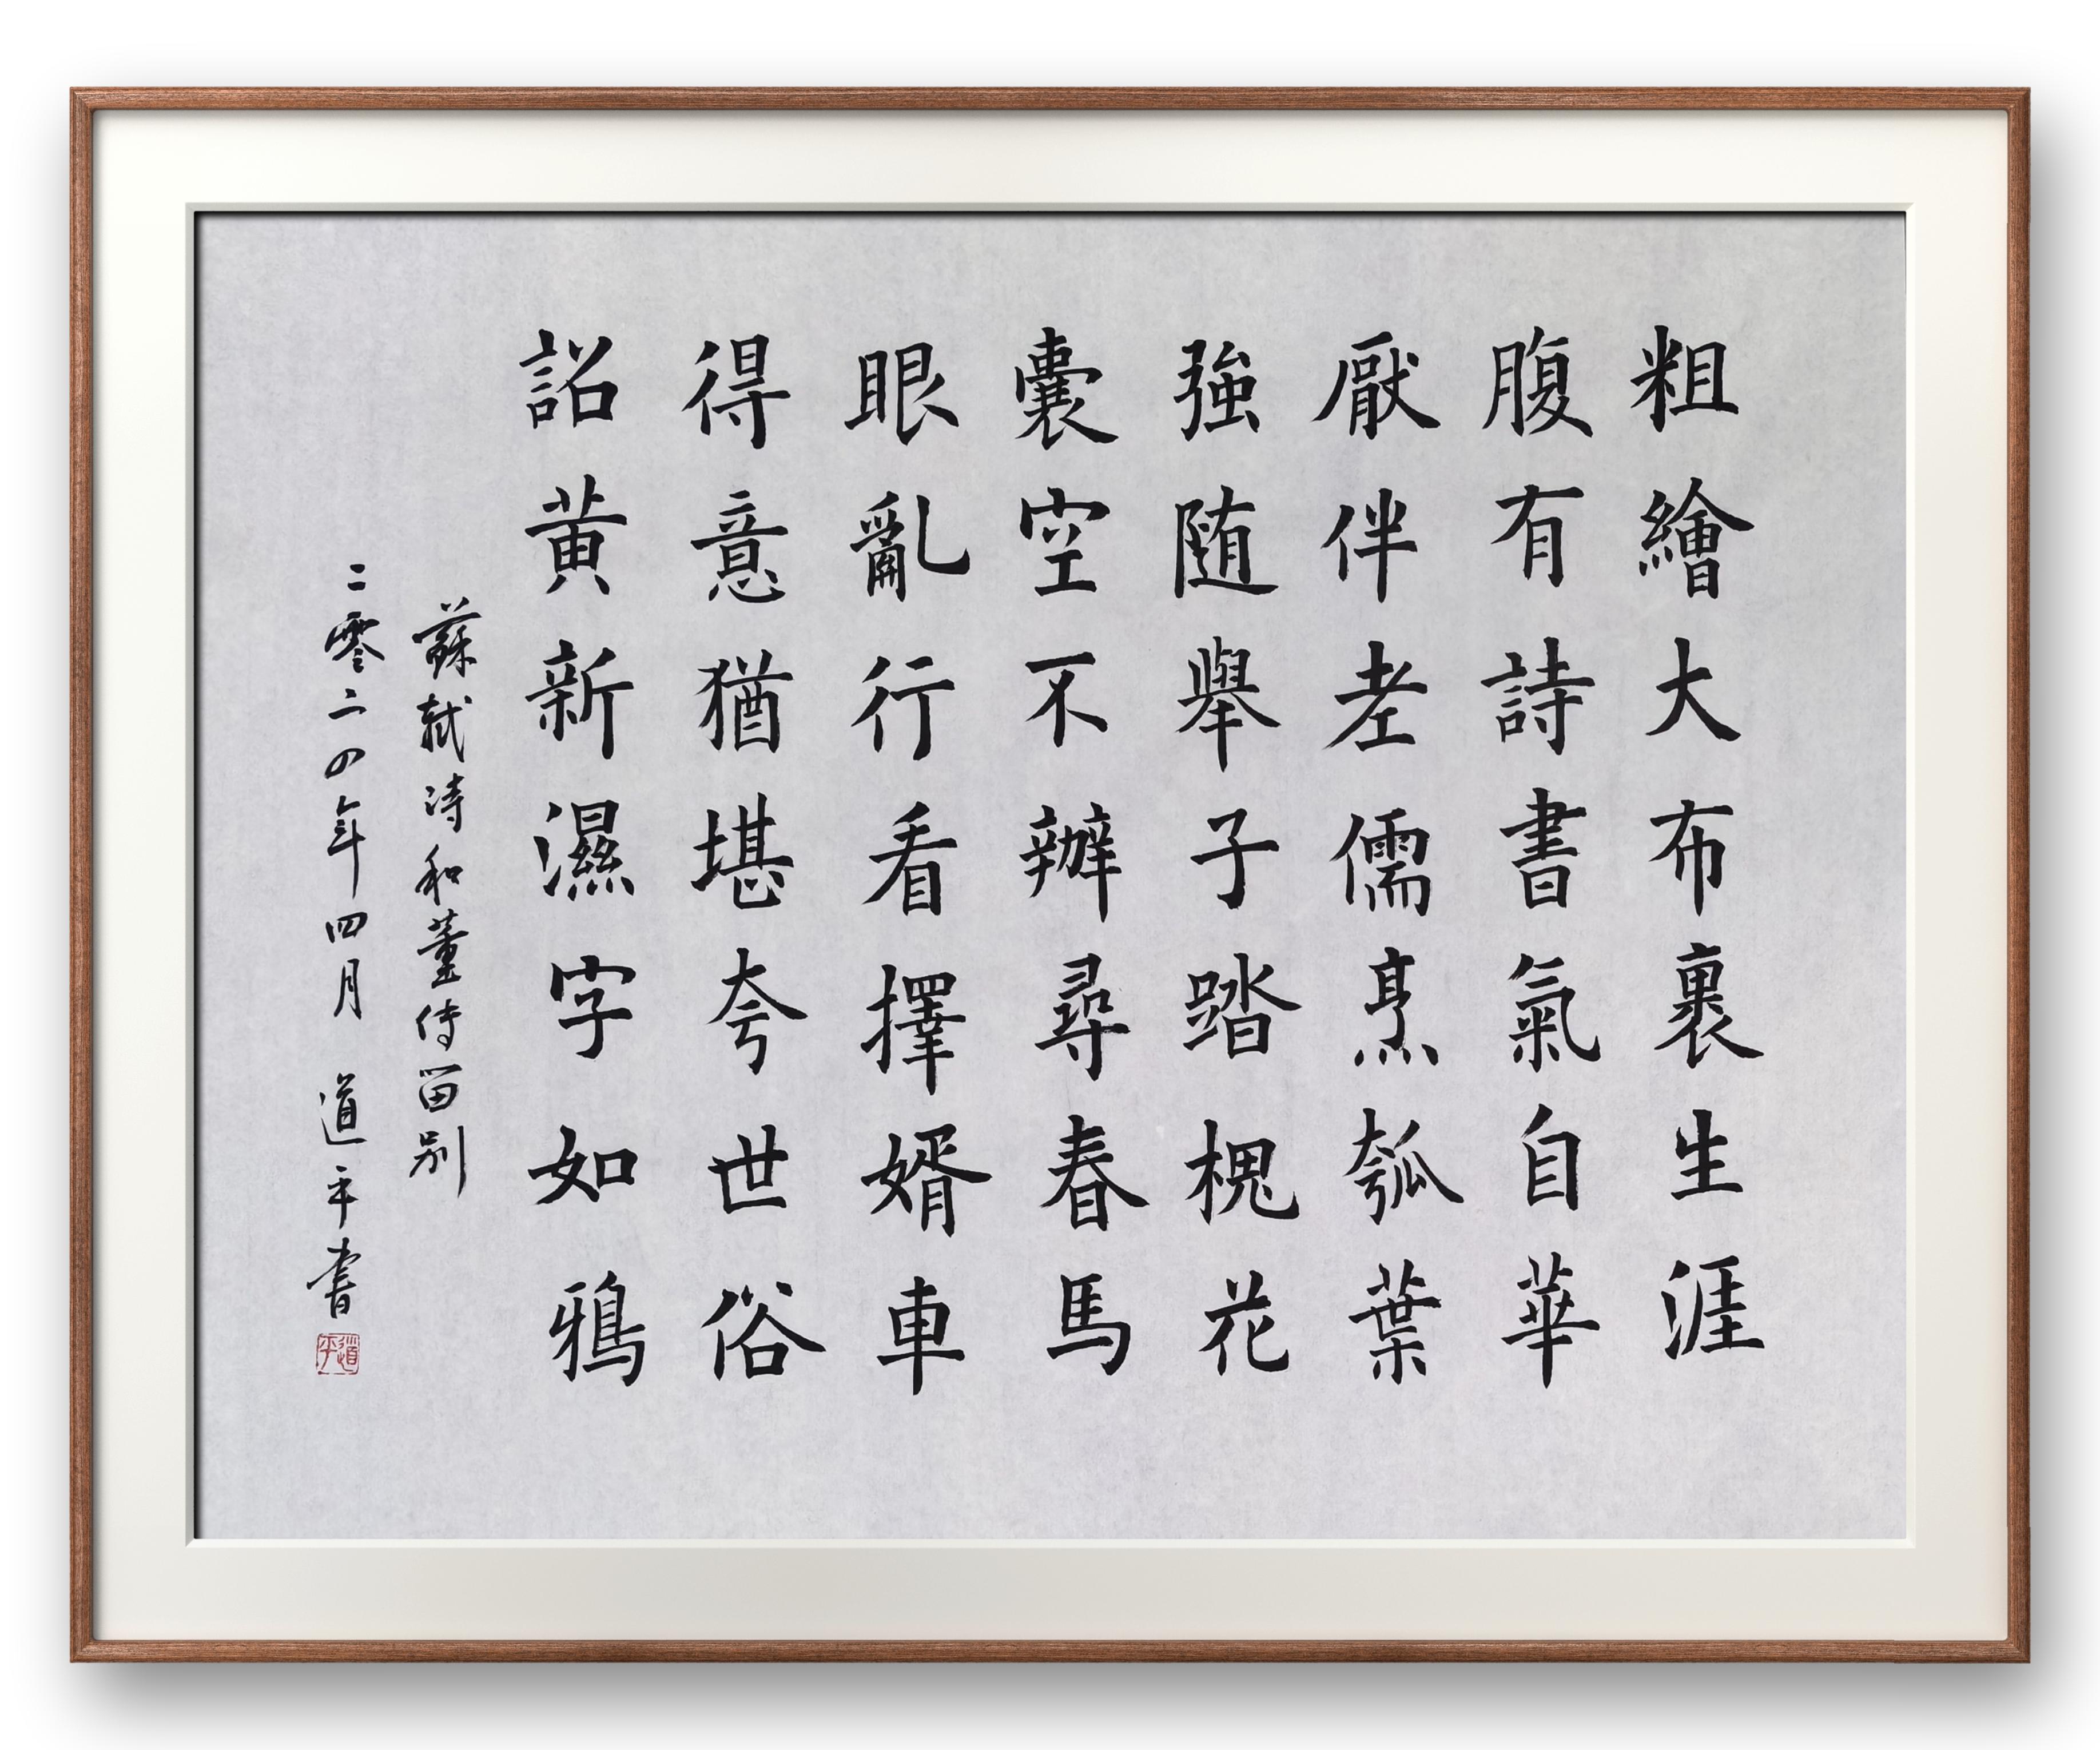 粗繒大布裹生涯
腹有詩書氣自華
厭伴老儒烹瓠葉
強随舉子踏槐花
囊空不辦尋春馬
眼亂行看擇婿車
得意猶堪夸世俗
詔黄新濕字如鴉
蘇軾诗和董传留别
二零二四年四月 道平書
道平